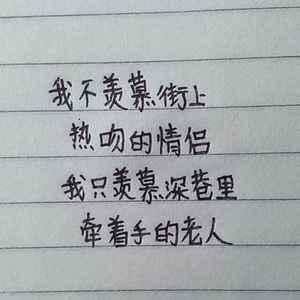 我不羡慕街上
热吻的情侣
我只羡慕深巷里
牵着手的老人